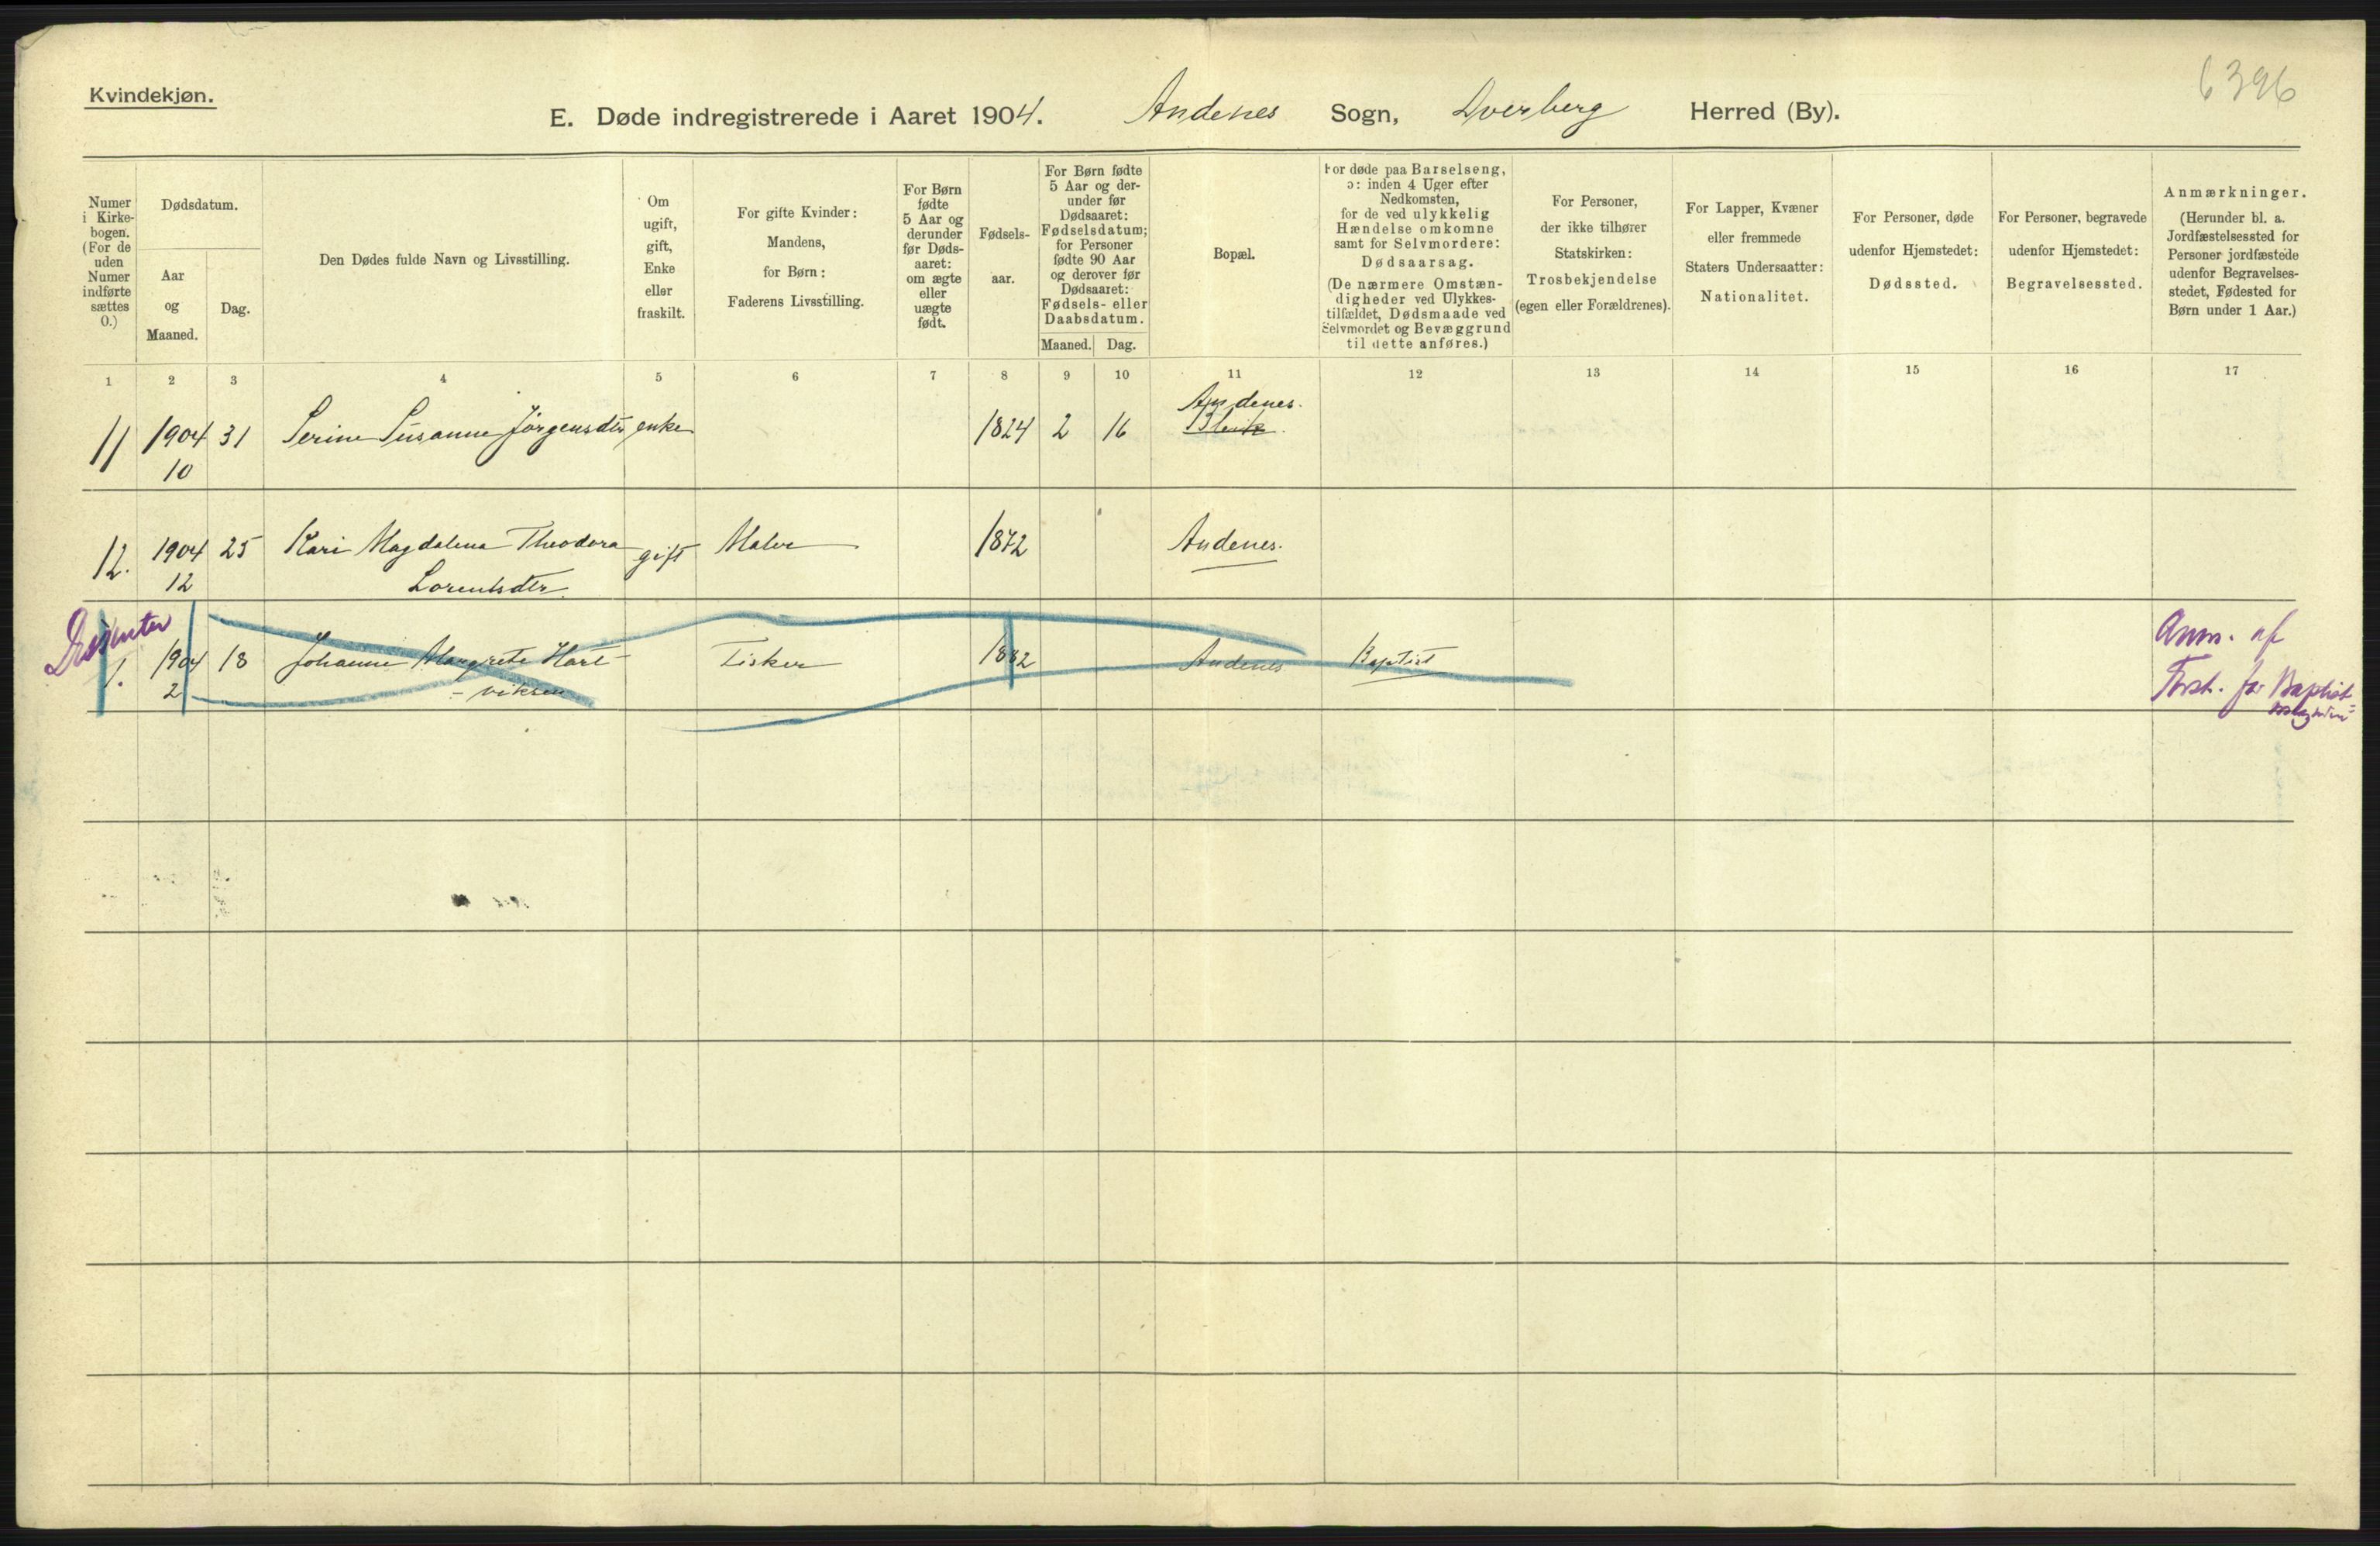 Kvindekjøn.
6396
E. Døde indregistrerede i Aaret 1904. Andenes Sogn, Dverberg Herred (By).
Numer i Kirkebogen. (For de uden Numer indførte sættes 0.)
Dødsdatum.
Aar og Maaned.
Dag.
Den Dødes fulde Navn og Livsstilling.
Om ugift, gift, Enke eller fraskilt.
For gifte Kvinder: Mandens, for Børn: Faderens Livsstilling.
For Børn fødte 5 Aar og derunder før Dødsaaret: om ægte eller uægte født.
Fødselsaar.
For Børn fødte 5 Aar og derunder før Dødsaaret: Fødselsdatum; for Personer fødte 90 Aar og derover før Dødsaaret: Fødsels- eller Daabsdatum.
Maaned. Dag.
Bopæl.
For døde paa Barselseng, ɔ: inden 4 Uger efter Nedkomsten, for de ved ulykkelig Hændelse omkomne samt for Selvmordere: Dødsaarsag. (De nærmere Omstændigheder ved Ulykkestilfældet, Dødsmaade ved Selvmordet og Bevæggrund til dette anføres.)
For Personer, der ikke tilhører Statskirken: Trosbekjendelse (egen eller Forældrenes).
For Lapper, Kvæner eller fremmede Staters Undersaatter: Nationalitet.
For Personer, døde udenfor Hjemstedet: Dødssted.
For Personer, begravede udenfor Hjemstedet: Begravelsessted.
Anmærkninger. (Herunder bl. a. Jordfæstelsessted for Personer jordfæstede udenfor Begravelsesstedet, Fødested for Børn under 1 Aar.)
1 2 3 4 5 6 7 8 9 10 11 12 13 14 15 16 17
Andenes.
11 1904 31 Serine Susanne Jørgensdtr enke 1824 2 16 Bleik.
10
12. 1904 25 Kari Magdalena Theodora gift Maler 1872 Andenes.
12 Lorentsdtr.
Dissenter
1. 1904 18 Johanne Margrete Hart- Fisker 1882 Andenes Baptist Anm. af
2 -viksen Forst. for Baptist